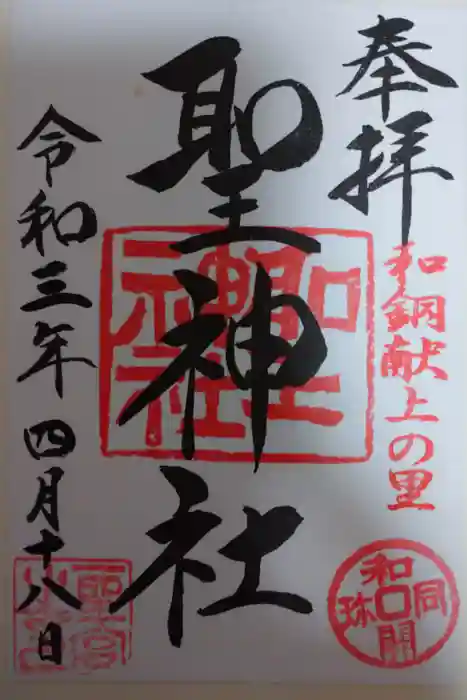 奉拝
和銅献上の里
聖神社
令和三年四月十八日
聖神社
和同開珎